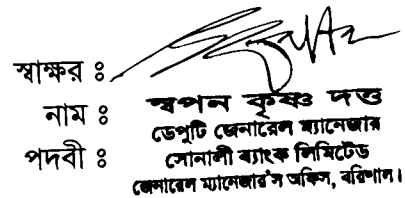 স্বাক্ষর ঃ
নাম ঃ স্বপন কৃষ্ণ দত্ত
ডেপুটি জেনারেল ম্যানেজার
পদবী ঃ সোনালী ব্যাংক লিমিটেড
জেনারেল ম্যানেজার'স অফিস, বরিশাল।